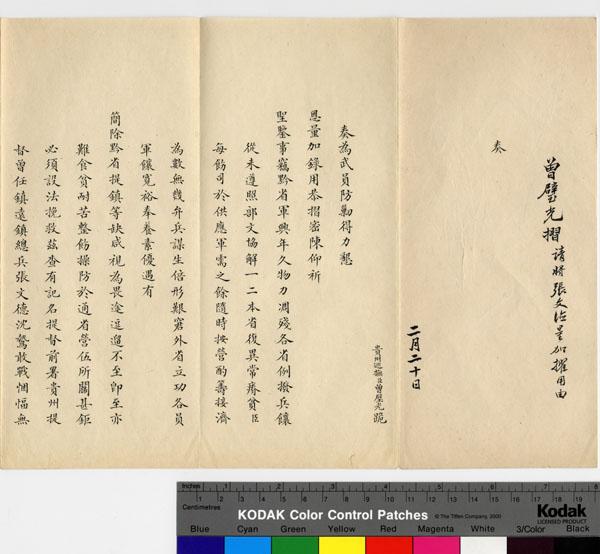 曾璧光摺 請將張文德量加擢用由
奏
二月二十日
貴州巡撫臣曾璧光跪
奏為武員防勦得力懇
恩量加錄用恭摺密陳仰祈
聖鑒事竊黔省軍興年久物力凋殘各省例撥兵饟
從未遵照部文協解一二本省復異常瘠貧臣
每飭司於供應軍需之餘隨時按營酌籌接濟
為數無幾弁兵謀生倍形艱窘外省立功各員
軍饟寬裕奉養素優遇有
簡除黔省提鎮等缺咸視為畏途逗遛不至即至亦
難食貧耐苦整飭操防於通省營伍所關甚鉅
必須設法挽救茲查有記名提督前署貴州提
督曾任鎮遠鎮總兵張文德沈鷙敢戰悃愊無
Inches 1 2 3 4 5 6 7 8
Centimetres 1 2 3 4 5 6 7 8 9 10 11 12 13 14 15 16 17 18 19
KODAK Color Control Patches © The Tiffen Company, 2000 Kodak
LICENSED PRODUCT
Blue Cyan Green Yellow Red Magenta White 3/Color Black